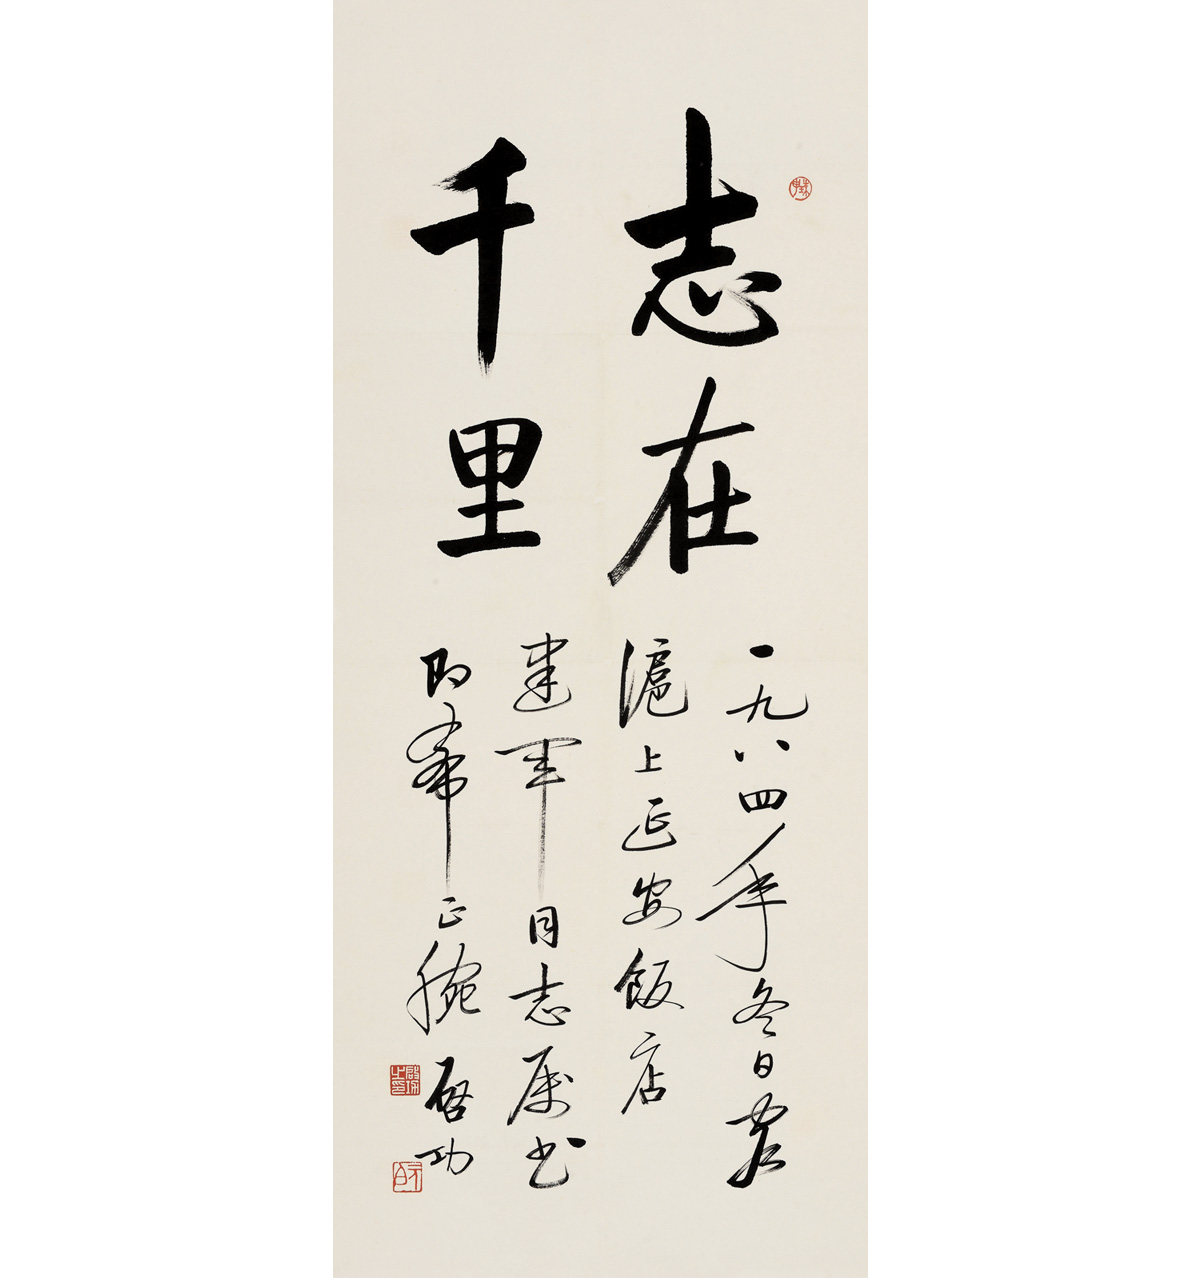 志在
千里
一九八四年冬日
滬上延安飯店
建军同志属书
即希正腕
启功
啟功之印
元白